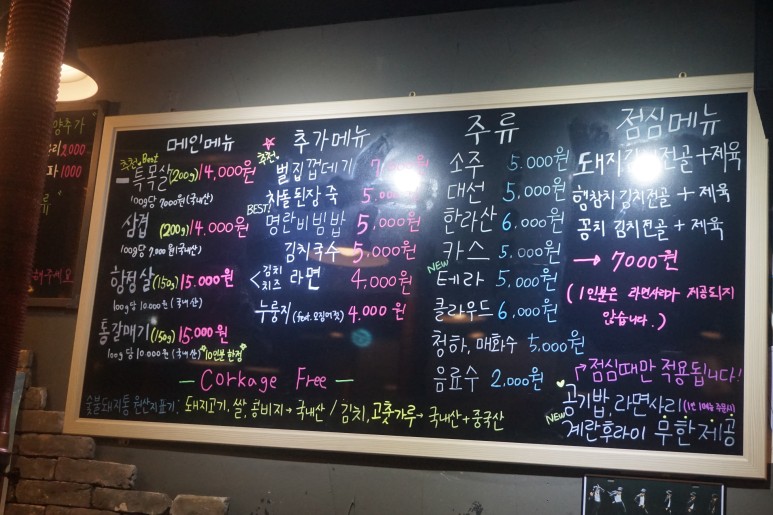 메인메뉴
추천 Best
특목살(200g) 14,000원
100g당 7000원(국내산)
삼겹 (200g) 14,000원
100g당 7,000원(국내산)
항정살(150g) 15.000원
100g당 10.000원(국내산)
통갈매기(150g) 15.000원
100g당 10.000원(국내산) 10인분 한정
추가메뉴
추천
벌집껍데기
차돌된장죽 5.000원
BEST!
명란비빔밥 5,000원
김치국수 5,000원
<김치 치즈 라면 4,000원
누룽지 4.000원
주류
소주 5.000원
대선 5,000원
한라산 6,000원
카스 5,000원
NEW
테라 5,000원
클라우드 6,000원
청하, 매화수 5,000원
음료수 2,000원
점심메뉴
돼지김치전골+제육
행참치 김치전골 + 제육
꽁치 김치전골 + 제육
→ 7000원
(1인분은 라면사리가 제공되지
않습니다.)
점심때만 적용됩니다!
공기밥, 라면사리
NEW
계란후라이 무한제공
— Corkage Free —
숯불돼지통 원산지표기: 돼지고기, 쌀, 콩비지→국내산 / 김치, 고춧가루→국내산+중국산
양주가
2,000
1000
해주세요